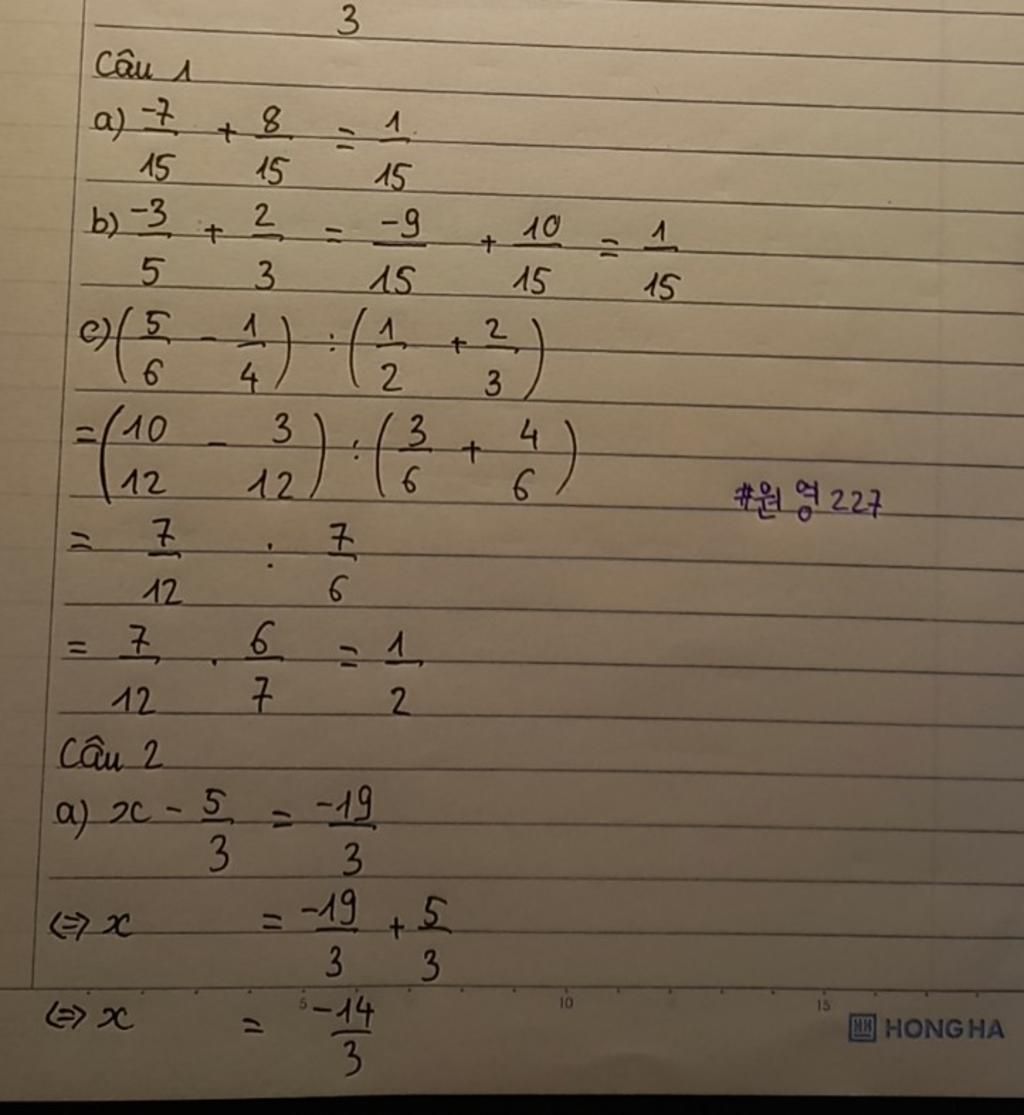 3
Câu 1
a) -7/15 + 8/15 = 1/15
b) -3/5 + 2/3 = -9/15 + 10/15 = 1/15
c) (5/6 - 1/4) : (1/2 + 2/3)
= (10/12 - 3/12) : (3/6 + 4/6)
#원영227
= 7/12 : 7/6
= 7/12 . 6/7 = 1/2
Câu 2
a) x - 5/3 = -19/3
<=> x = -19/3 + 5/3
<=> x = -14/3
5 10 15
HONG HA